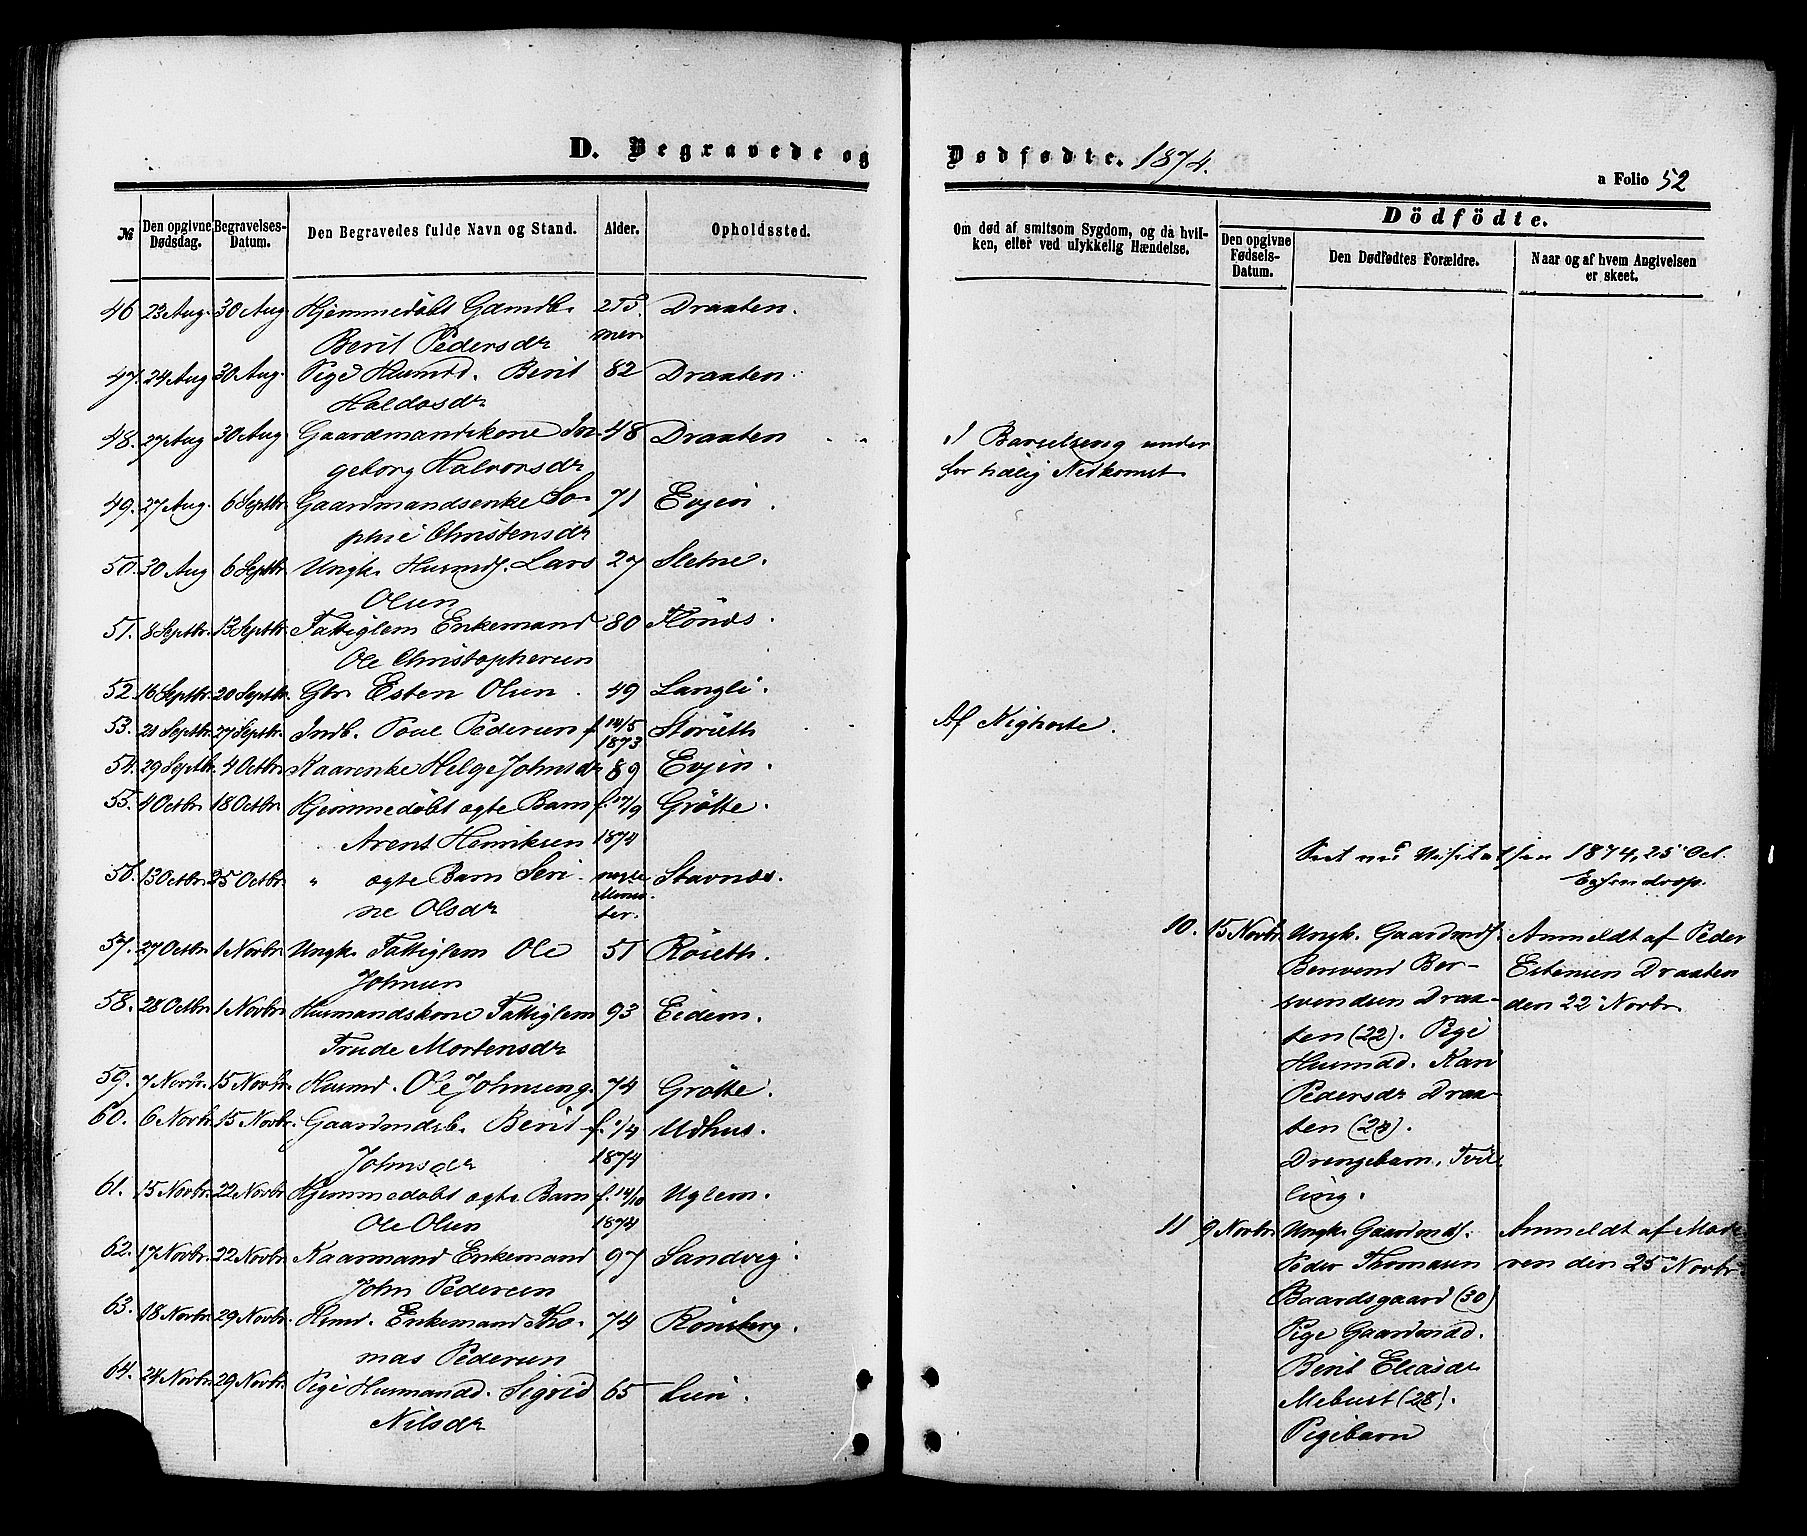 D. Begravede og Dødfødte. 1874.
a Folio 52
№
Den opgivne Dødsdag.
Begravelses-Datum.
Den Begravedes fulde Navn og Stand.
Alder.
Opholdssted.
Om død af smitsom Sygdom, og da hvil-
ken, eller ved ulykkelig Hændelse.
Dödfödte.
Den opgivne Fødsels-Datum.
Den Dødfødtes Forældre.
Naar og af hvem Angivelsen er skeet.
46 23 Aug. 30 Aug Hjemmedøbt Gaardb. 2 T. Draxten.
Berit Pedersdr
47. 24 Aug 30 Aug. Pige Husmd. Berit 82 Draxten.
Haldosdr
48. 27 Aug 30 Aug Gaardmandskone In- 48 Draxten " I Barselseng under
geborg Halvorsdr for tidlig Nedkomst
49. 27 Aug. 6 Septbr. Gaardmandsenke So- 71 Evjen.
phie Christensdr
50. 30 Aug 6 Septbr. Ungk. Husmds. Lars 27 Sletne.
Olsen
51. 8 Septbr. 13 Septbr. Fattiglem Enkemand 80 Flönæs.
Ole Christophersen
52. 16 Septbr. 20 Septbr. Gbr Esten Olsen. 49 Langli.
53. 21 Septbr. 27 Septbr. Indb. Poul Pedersen f. 14/5 Störseth Af Kighoste.
1873
54. 29 Septbr. 4 Octbr. Kaarenke Helge Johnsdr 89 Evjen.
55. 4 Octbr. 18 Octbr. Hjemmedøbt ægte Barn f. 17/9 Grötte.
" Arent Henriksen 1874
Seet ved Visitatsen 1874, 25 Oct.
56. 13 Octbr. 25 Octbr. " ægte Barn Seri- Stavnæs.
ne Olsdr
57. 27 Octbr. 1 Novbr. Ungk. Fattiglem Ole 51 Röseth.
Johnsen
58. 28 Octbr. 1 Novbr. Husmandskone Fattiglem 93 Eidem.
Trude Mortensdr
59. 7 Novbr. 15 Novbr. Husmd. Ole Johnseng. 74 Grötte.
60. 6 Novbr. 15 Novbr. Gaardmdsb. Berit f. 1/4 Udhus.
Johnsdr 1874
61. 15 Novbr. 22 Novbr. Hjemmedøbt ægte Barn f. 14/10 Uglem.
Ole Olsen 1874
62. 17 Novbr. 22 Novbr. Kaarmand Enkemand 97 Sandvig.
John Pedersen
63. 18 Novbr. 29 Novbr. Husmd. Enkemand Tho- 74 Rönsberg.
mas Pedersen
64. 24 Novbr. 29 Novbr. Pige Husmandd. Sigrid 65 Lien.
Nilsdr
10. 15 Novbr. Ungk. Gaardmds. Anmeldt af Peder
Bersvend Ber- Estensen Draxten
svendsen Drax- den 22 Novbr.
ten (22). Pige
Husmdd. Kari
Pedersdr Drax-
ten (28).
Drengebarn, Tvil-
ling.
11 9 Novbr. Ungk. Gaardmds. Anmeldt af Mode-
Peder Thomasen ren den 25 Novbr.
Baardsgaard (30)
Pige Gaardmdd.
Berit Eliasdr
Mebust (28).
Pigebarn